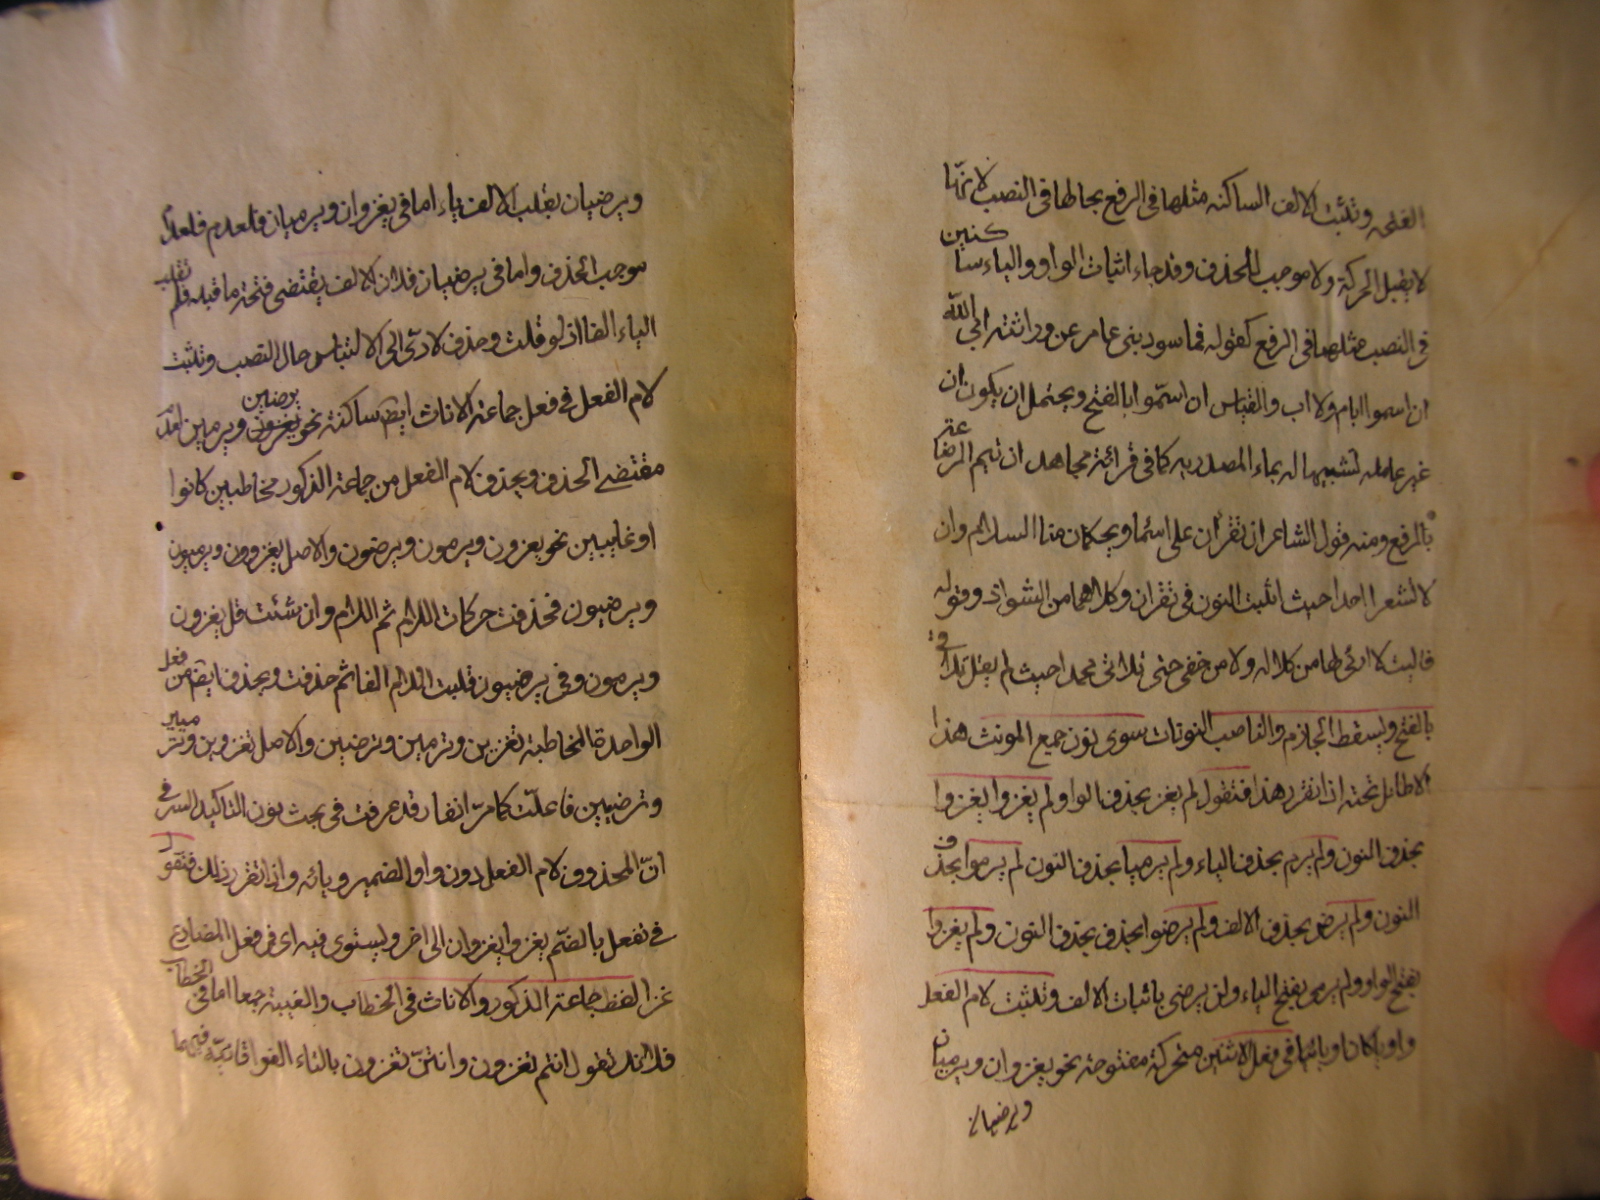 الفتحه وتثبت الالف الساكنه مثلها في الرفع بحالها في النصب لانها
لا يقبل الحركة ولا موجب للحذف وقد جاء اثبات الواو والياء ساكنين
في النصب مثلهما في الرفع كقوله فما سودتني عامر عن وراثته ابي الله
ان اسموا بام ولا اب والقياس ان اسموا بالفتح ويحتمل ان يكون ان
غير عامله تشبيها له بماء المصدريه كما في قرائة مجاهد ان تيم الرضاعة
بالرفع ومنه قول الشاعر ان تقرآن على اسما ويحكما منا السلام وان
لا تشعرا احدا حيث اثبت النون في تقرآن وكلاهما من الشواذ وقوله
فاليت لا ارثي لها من كلاله ولا من خفي حتى تلاقي محمدا حيث لم يقل تلاقي
بالفتح ويسقط الجازم والناصب النونات سوى نون جمع المونث هذا
لاطائل تحته اذا تقرر هذا فتقول لم يغز بحذف الواو ولم يغزوا يغزوا
بحذف النون ولم يرم بحذف الياء ولم يرميا بحذف النون لم يرموا بحذف
النون ولم يرض بحذف الالف ولم يرضوا بحذف بحذف النون ولم يغزوا
بفتح الواو ولم يرمي بفتح الياء ولن يرضى باثبات الالف وتثبت لام الفعل
واويا كان او يائيا في فعل الاثنين متحركة مفتوحة نحو يغزوان ويرميان
ويرضيان
ويرضيان بقلب الالف ياء اما في يغزوان ويرميان فلعدم
موجب الحذف واما في يرضيان فلان الالف يقتضي فتحة ما قبله فلم تقلب
الياء الفا اذ لو قلت وحذف لادّى الى الالتباس حال النصب وتثبت
لام الفعل في فعل جماعة الاناث ايضا ساكنة نحو يغزون ويرمين يرضين
مقتضى الحذف ويحذف لام الفعل من جماعة الذكور مخاطبين كانوا
او غايبين نحو يغزون ويرمون ويرضون والاصل يغزوون ويرميون
ويرضيون فحذفت حركات اللام ثم اللام وان شئت قل يغزون
ويرمون وفي يرضيون قلبت اللام الفا ثم حذفت ويحذف ايضا من فعل
الواحدة المخاطبة تغزين وترمين وترضين والاصل تغزوين وترميين
وترضيين فاعلت كما مر انفا وقد عرفت في بحث نون التاكيد السر في
انّ المحذوف لام الفعل دون واو الضمير ويائه واذا تقرر ذلك فتقول
في تفعل بالضم يغزو يغزوان الى اخر ويستوي فيه اي في فعل المضارع
غزا لفظ جماعة الذكور والاناث في الخطاب والغيبة جمعا اما في الخطاب
فلانك تقول انتم تغزون وانتنّ تغزون بالتاء الفوقانيّة فيهما